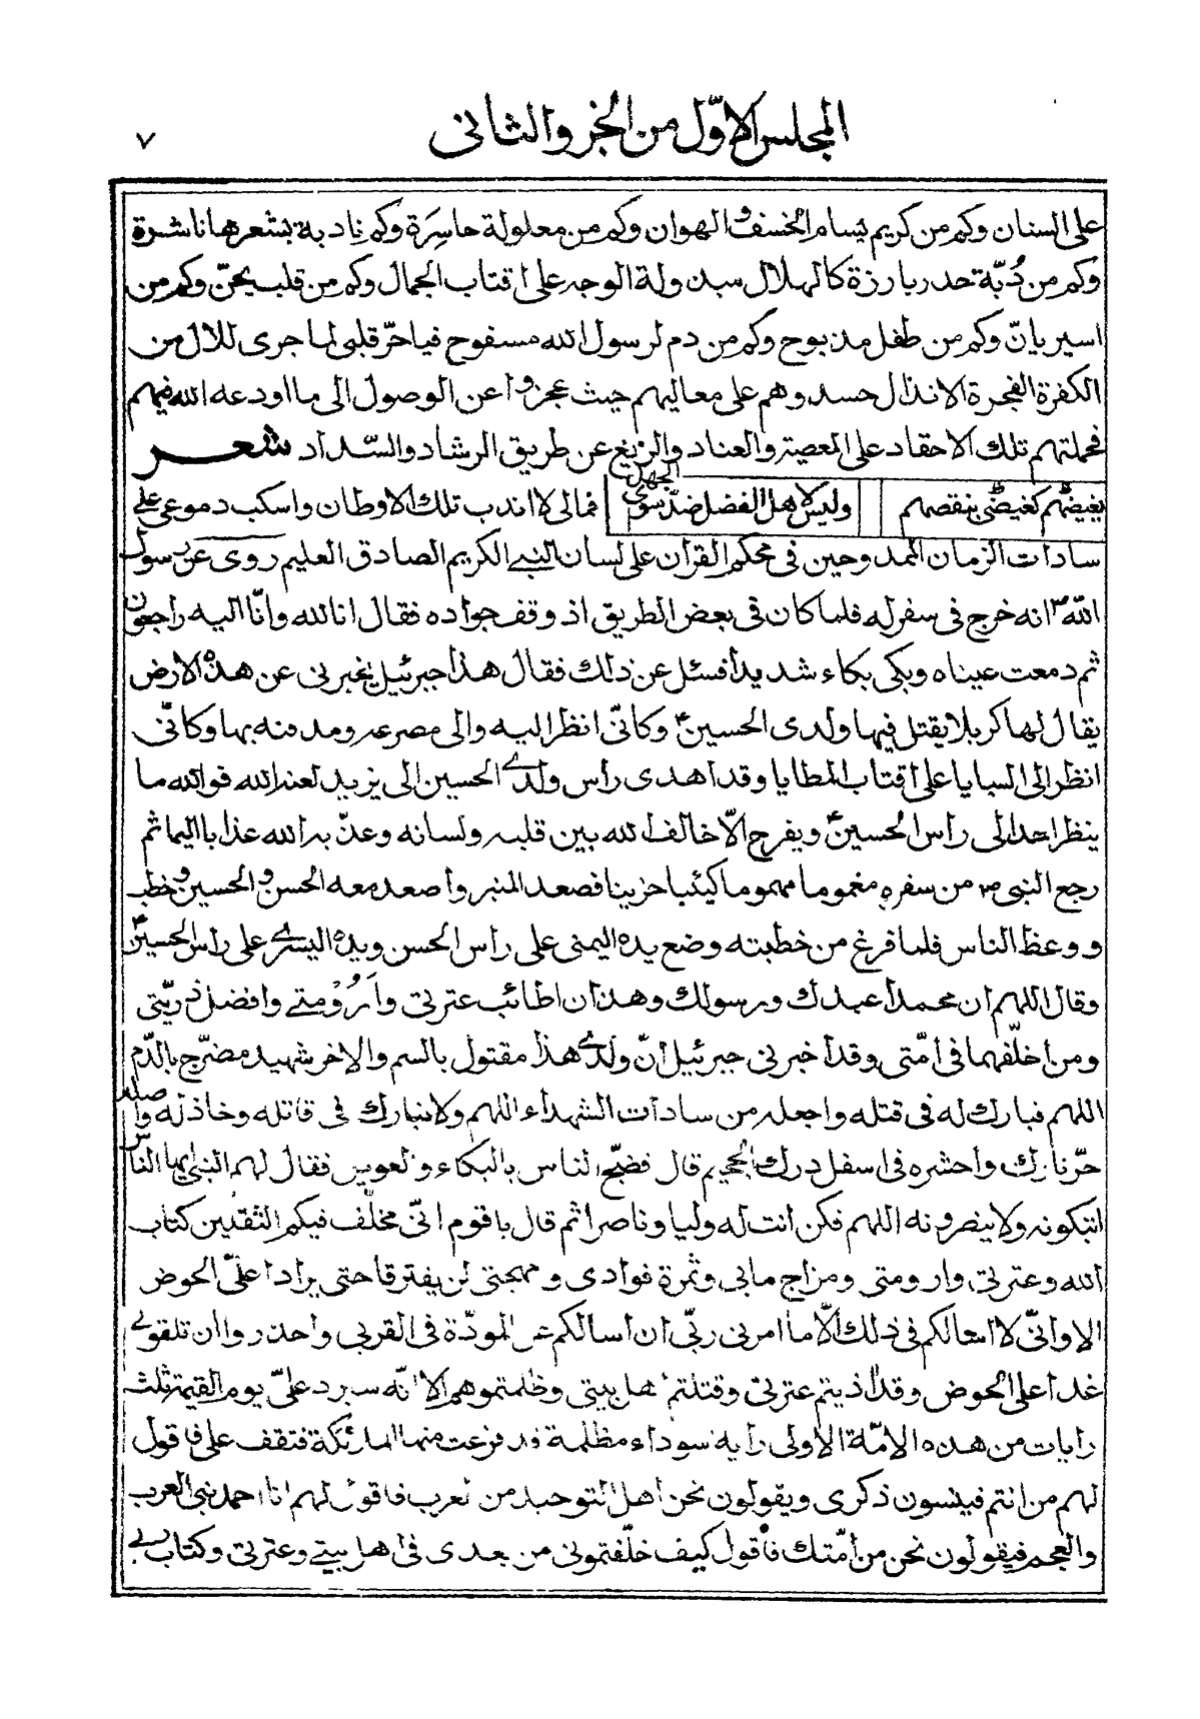 المجلس الاوّل من الجزو الثانى
٧
على السنان وكم من كريم يسام الخسف والهوان وكم من معلولة حاسِرَة وكم نادبة بشعرها ناشرة
وكم من رُبّة خدر بارزة كالهلال مبذولة الوجه على اقتاب الجمال وكم من قلب يحنّ وكم من
اسير يانّ وكم من طفل مذبوح وكم من دم لرسول الله مسفوح فياحرّ قلبى لما جرى للال من
الكفرة الفجرة الانذال حسدوهم على معاليهم حيث عجزوا عن الوصول الى ما اودعه الله فيهم
فحملتهم تلك الاحقاد على المعصية والعناد والزيغ عن طريق الرشاد والسّداد شعر
يغيضهم كغيضى بنقصهم وليس لاهل الفضل ضدّ سوى الجهل فمالى لا اندب تلك الاوطان واسكب دموعى على
سادات الزمان الممدوحين فى محكم القران على لسان النبى الكريم الصادق العليم روى عن رسول
اللّه ص انه خرج فى سفر له فلما كان فى بعض الطريق اذ وقف جواده فقال انا لله وانّا اليه راجعون
ثم دمعت عيناه وبكى بكاء شديدا فسئل عن ذلك فقال هذا جبرئيل يخبرنى عن هذه الارض
يقال لها كربلا يقتل فيها ولدى الحسينؑ وكانّى انظر اليه والى مصرعه ومدفنه بها وكانّى
انظر الى السبايا على اقتاب المطايا وقد اهدى راس ولدى الحسين الى يزيد لعنه الله فوالله ما
ينظر احد الى راس الحسينؑ ويفرح الّا خالف الله بين قلبه ولسانه وعذّبه الله عذابا اليما ثم
رجع النبى ص من سفره مغموما مهموما كئيبا حزينا فصعد المنبر واصعد معه الحسن والحسين وخطب
ووعظ الناس فلما فرغ من خطبته وضع يده اليمنى على راس الحسن ويده اليسرى على راس الحسينؑ
وقال اللهم ان محمدا عبدك ورسولك وهذان اطائب عترتى وارُوْمتى وافضل ذريّتى
ومن اخلّفهما فى امّتى وقد اخبرنى جبرئيل انّ ولدى هذا مقتول بالسم والاخر شهيد مضرّج بالدّم
اللهم فبارك له فى قتله واجعله من سادات الشهداء اللهم ولا تبارك فى قاتله وخاذله واصله
حرّ نارك واحشره فى اسفل درك الجحيم قال فضجّ الناس بالبكاء والعويل فقال لهم النبى ايها الناس
اتبكونه ولا ينصرونه اللهم فكن انت له وليا وناصرا ثم قال ياقوم انىّ مخلّف فيكم الثقلين كتاب
الله وعترتى وارومتى ومزاج مابى وثمرة فوادى ومهجتى لن يفترقا حتى يرادا علىّ الحوض
الا وانّى لا اسالكم فى ذلك الّا ما امرنى ربّى ان اسالكم عن المودّة فى القربى واحذروا ان تلقونى
غدا على الحوض وقد اذيتم عترتى وقتلتم اهل بيتى وظلمتموهم الا انّه سيرد علىّ يوم القيمة ثلث
رايات من هذه الامّة الاولى راية سوداء مظلمة قد فزعت منها الملئكة فتقف على فاقول
لهم من انتم فينسون ذكرى ويقولون نحن اهل التوحيد من العرب فاقول لهم انا احمد نبى العرب
والعجم فيقولون نحن من امّتك فاقول كيف خلّفتمونى من بعدى فى اهل بيتى وعترتى وكتاب ربى